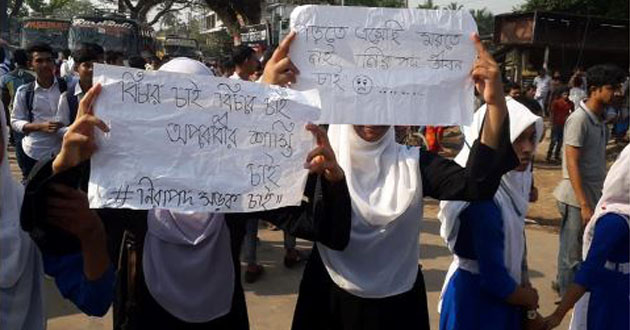 বিচার চাই বিচার চাই
অপরাধীর শাস্তি
চাই
# নিরাপদ সড়ক চাই
পড়তে এসেছি মরতে
নই, নিরাপদ জীবন
চাই ☹ ......